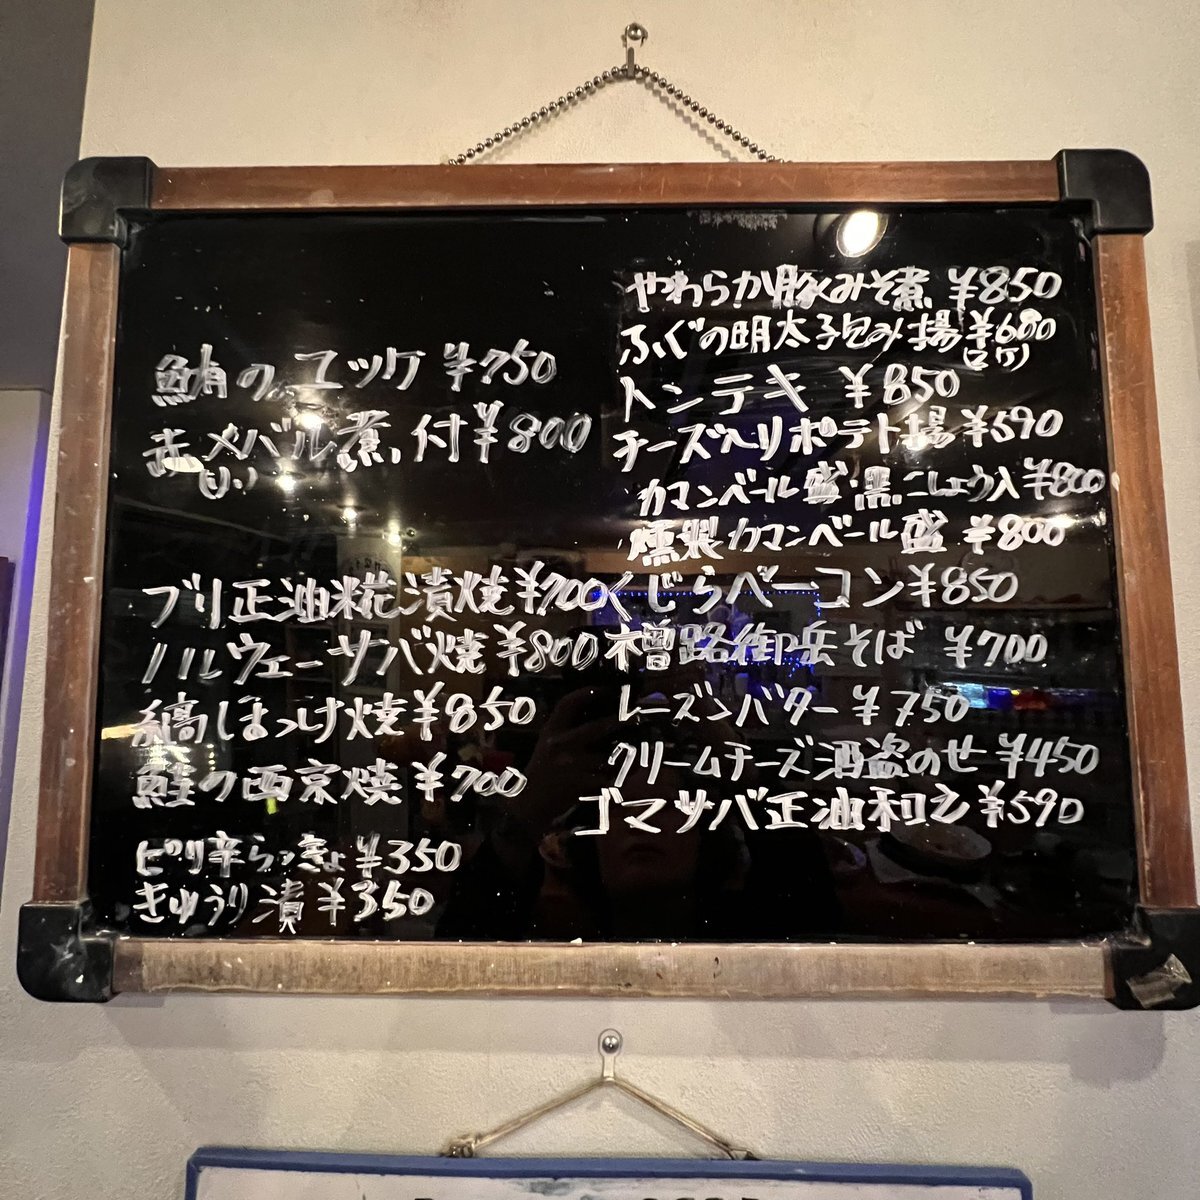 鮪のユッケ ¥750
赤メバル煮付 ¥800
ブリ正油糀漬焼 ¥700
ノルウェーサバ焼 ¥800
縞ほっけ焼 ¥850
鮭の西京焼 ¥700
ピリ辛らっきょ ¥350
きゅうり漬 ¥350
やわらか豚みそ煮 ¥850
ふぐの明太子包み揚 ¥600
(2ケ)
トンテキ ¥850
チーズ入りポテト揚 ¥590
カマンベール盛・黒こしょう入 ¥800
燻製カマンベール盛 ¥800
くじらベーコン ¥850
木曽路御岳そば ¥700
レーズンバター ¥750
クリームチーズ酒盗のせ ¥450
ゴマサバ正油和え ¥590